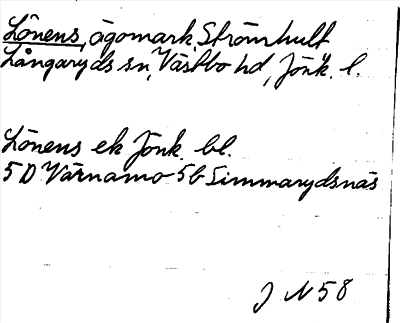 Lönens, ägomark, Strömhult
Långaryds sn, Västbo hd, Jönk. l.
Lönens ek Jönk. bl.
5D Värnamo 5b Simmarydsnäs
J N 58